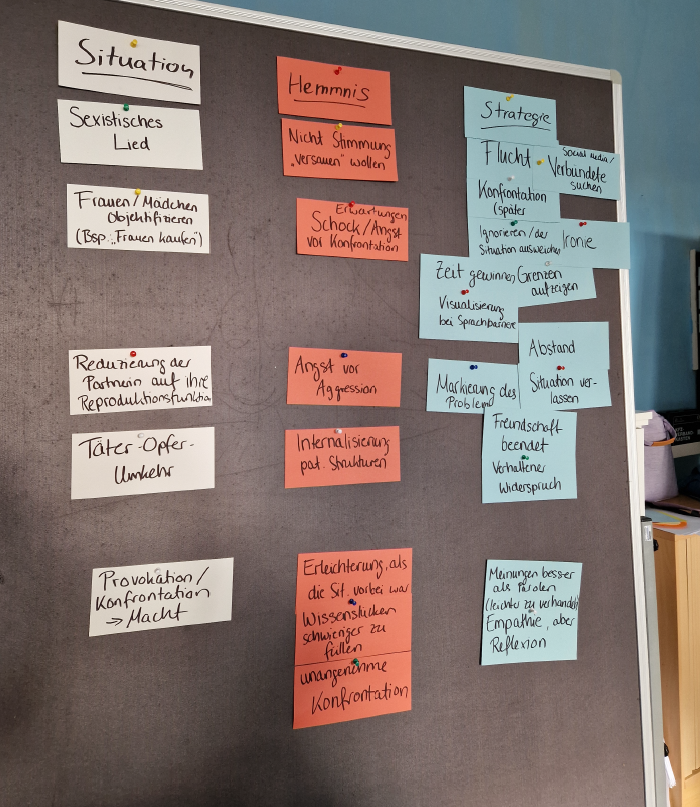 Situation
Sexistisches
Lied
Frauen/Mädchen
Objektifizieren
(Bsp. "Frauen kaufen")
Reduzierung der
Partnerin auf ihre
Reproduktionsfunktion
Täter-Opfer-
Umkehr
Provokation/
Konfrontation
→ Macht
Hemmnis
Nicht Stimmung
"versauen" wollen
Erwartungen
Schock/Angst
vor Konfrontation
Angst vor
Aggression
Internalisierung
pat. Strukturen
Erleichterung, als
die Sit. vorbei war
Wissenslücken
schwieriger zu
füllen
unangenehme
Konfrontation
Strategie
Flucht
Social media/
Verbündete
suchen
Konfrontation
(später
Ignorieren/der
Situation ausweichen
Ironie
Zeit gewinnen
Grenzen
aufzeigen
Visualisierung
bei Sprachbarriere
Abstand
Markierung des
Problems
Situation ver-
lassen
Freundschaft
beendet
Verhaltener
Widerspruch
Meinungen besser
als Parolen
(leichter zu verhandeln)
Empathie, aber
Reflexion